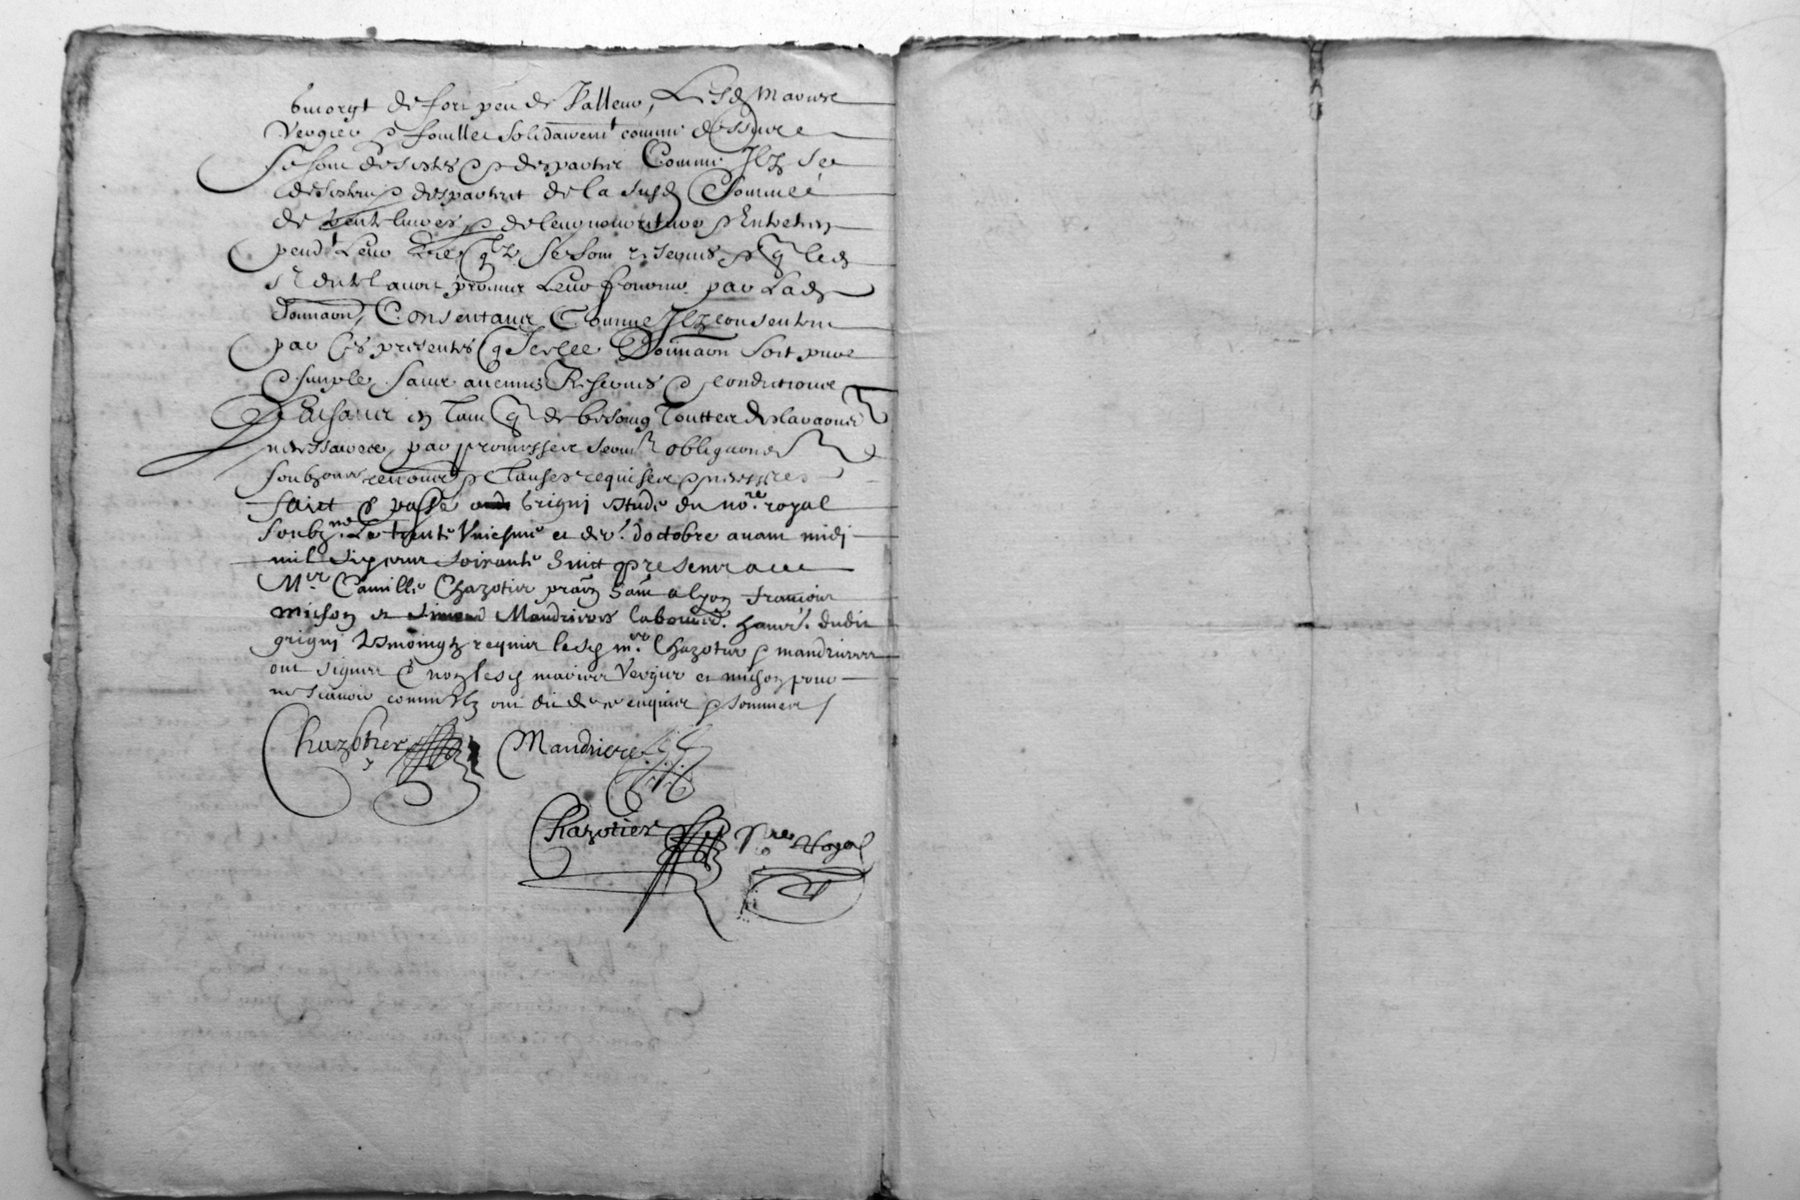 de fort peu de Valleur, Lesd Mariez
Vergier & fouillet Solidairemt comme dessure
se sont desistes & despartir Comme Ilz se
desistent & despartent de la susd Somme
de livres & de leur nourriture & Entretien
pendt Leur Vie qlz se sont reservés & q led
Sr avoit promis Leur fournir par Lad
Donnaon, Consentant Comme Ilz consentent
par Ces presentes q Donnaon soit pure
& simple sans aucunes Reserves & conditions
En Tant q de besoing Touttes declaraons
necessaires, par promesses sermt obligaons
renonce & Clauses requises & necessres
faict & passé a Grigni estude du nore royal
soubzné Le trente Vniesme et der. doctobre avant midi
mil six cent soixante huict presentz
Me Camille Chazotier praten habt a lyon francois
michon et Mandrieres laboureur habt. dudit
grigni Tesmoingtz requis lesq mre Chazotier & mandrieres
ont signez & non lesq mariez Vergier et michon pour
ne scavoir comme Ilz ont dit de ce enquis & sommez /
Chazotier Mandriere
Chazotier Nre Royal